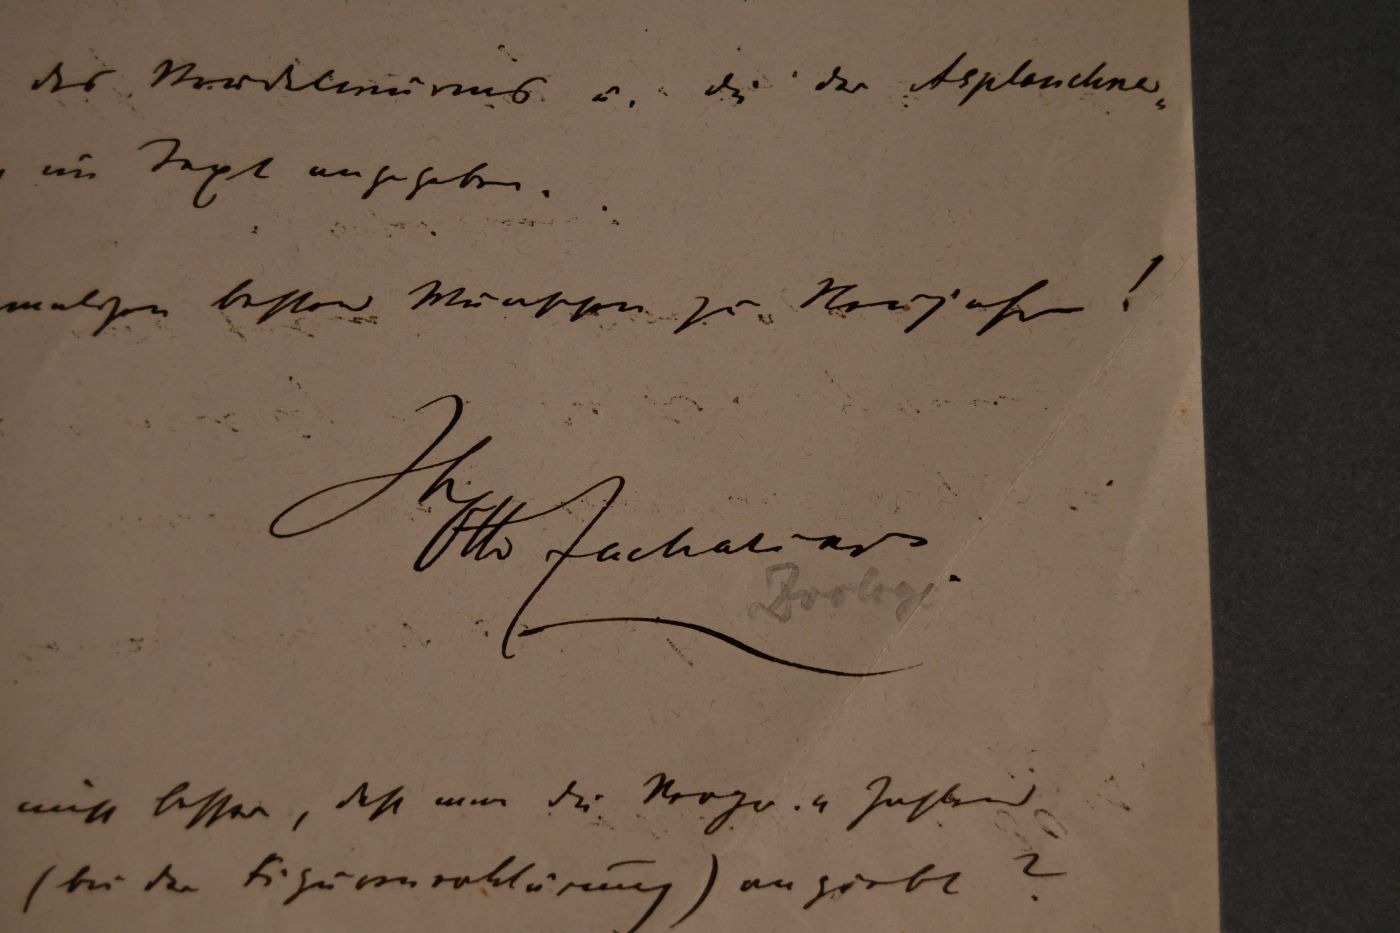 des Strudelwurms u. die der Asplanchna„
im Text angegeben.
maligen besten Wünschen zu Neujahr!
Ihr
Otto Zacharias.
Zoologe
nicht besser, daß man die Vergr.
(bei der Figurenerklärung) angiebt?